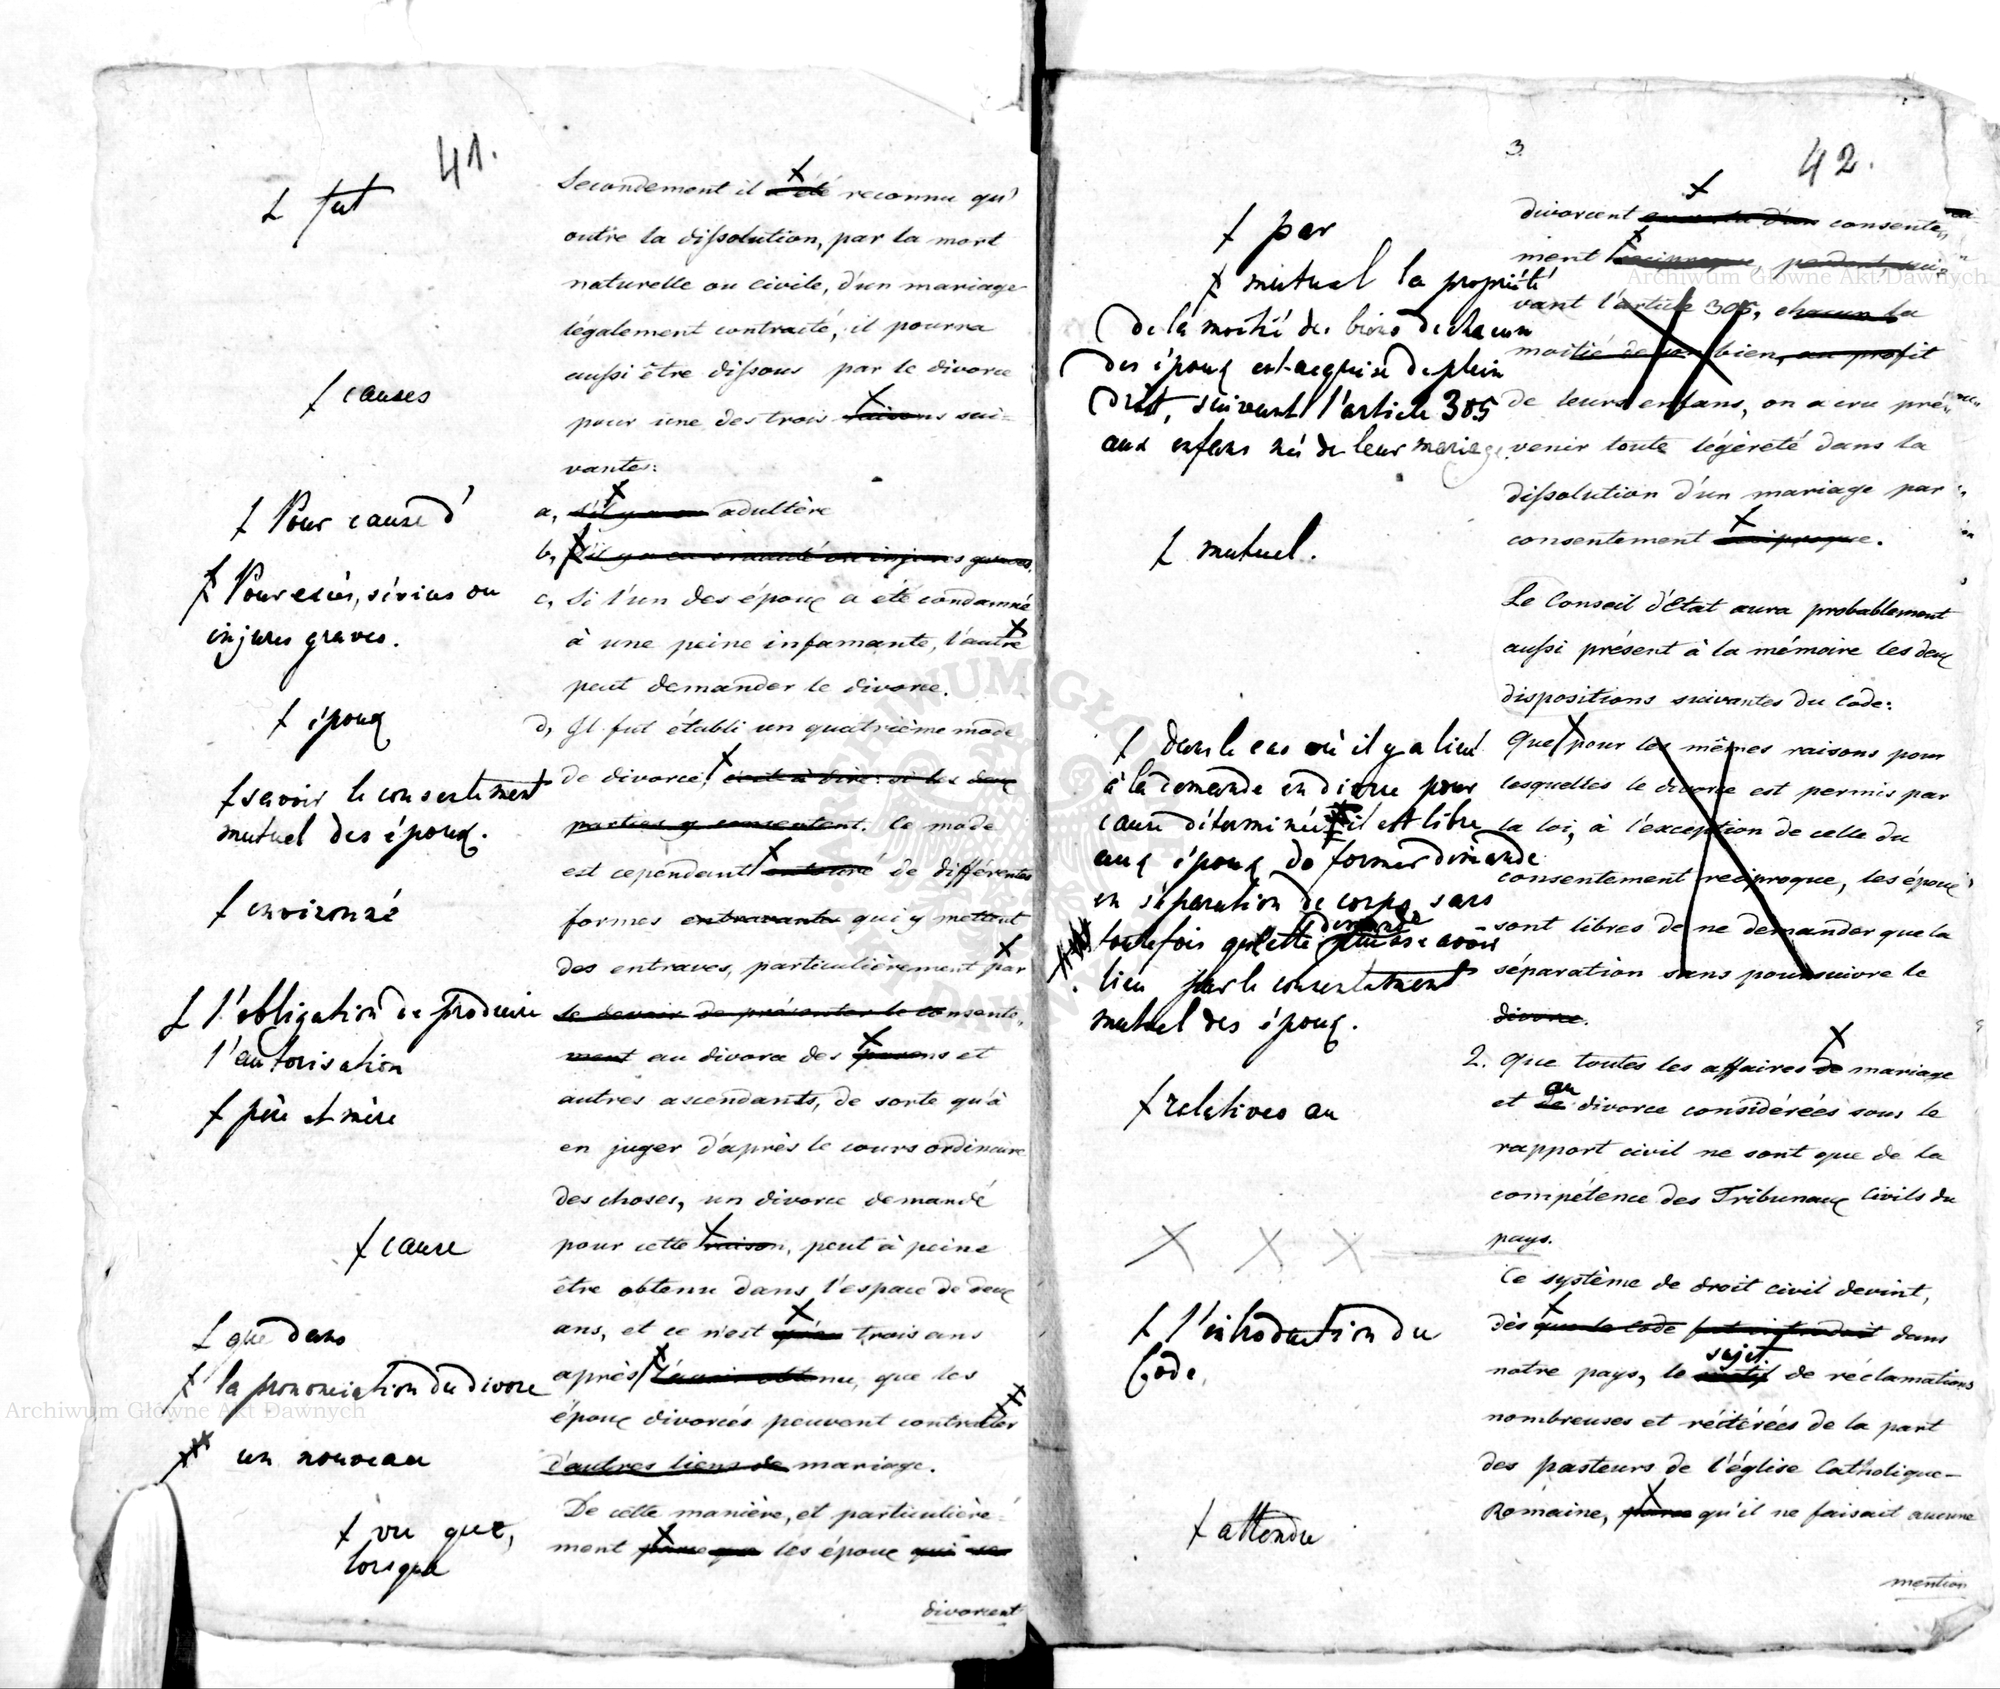 41.
Secondement il a été reconnu qu'
outre la dissolution, par la mort
naturelle ou civile, d'un mariage
légalement contracté, il pourra
aussi être dissous par le divorce
pour une des trois raisons sui=
vantes:
a, s'il y a eu adultère
b, s'il y a eu cruauté ou injures graves,
c, Si l'un des époux a été condamné
à une peine infamante, l'autre
peut demander le divorce.
d, Il fut établi un quatrième mode
de divorce, c'est à dire: si les deux
parties y consentent. Ce mode
est cependant entouré de différentes
formes entravantes qui y mettent
des entraves, particulièrement par
le devoir de présenter le consente,,
ment au divorce des parens et
autres ascendants, de sorte qu'à
en juger d'après le cours ordinaire
des choses, un divorce demandé
pour cette raison, peut à peine
être obtenu dans l'espace de deux
ans, et ce n'est qu'au trois ans
après l'avoir obtenu, que les
époux divorcés peuvent contracter
d'autres liens de mariage.
De cette manière, et particulière=
ment parce que les époux qui se
divorcent
fut
causes
Pour cause d'
Pour excès, sévices ou
injures graves.
époux
savoir le consentement
mutuel des époux.
environné
l'obligation de produire
l'autorisation
père et mère
cause
que dans
la prononciation du divorce
un nouveau
vu que,
lorsque
3.
42.
divorcent d'un consente,,
ment réciproque, perdent, sui=
vant l'article 305, chacun la
moitié de son bien, au profit
de leurs enfans, on a cru pré,,
venir toute légèreté dans la
dissolution d'un mariage par
consentement réciproque.
Le Conseil d'Etat aura probablement
aussi présent à la mémoire les deux
dispositions suivantes du Code:
Que pour les mêmes raisons pour
lesquelles le divorce est permis par
la loi, à l'exception de celle du
consentement réciproque, les époux
sont libres de ne demander que la
séparation sans poursuivre le
divorce.
2. Que toutes les affaires de mariage
et de au divorce considérées sous le
rapport civil ne sont que de la
compétence des Tribunaux Civils du
pays.
Ce système de droit civil devint,
dès que le code fut introduit dans
notre pays, le motif sujet de réclamations
nombreuses et réitérées de la part
des pasteurs de l'église Catholique-
Romaine, parce qu'il ne faisait aucune
mention
par
mutuel la propriété
de la moitié des biens de chacun
des époux est acquise de plein
droit, suivant l'article 305
aux enfans nés de leur mariage.
mutuel.
dans le cas où il y a lieu
à la demande en divorce pour
cause déterminée il est libre
aux époux de former demande
en séparation de corps, sans
toutefois que cette demande puisse avoir
lieu par le consentement
mutuel des époux.
relatives au
l'introduction du
Code,
attendu
Archiwum Główne Akt Dawnych
Archiwum Główne Akt Dawnych
ARCHIWUM GŁÓWNE AKT DAWNYCH